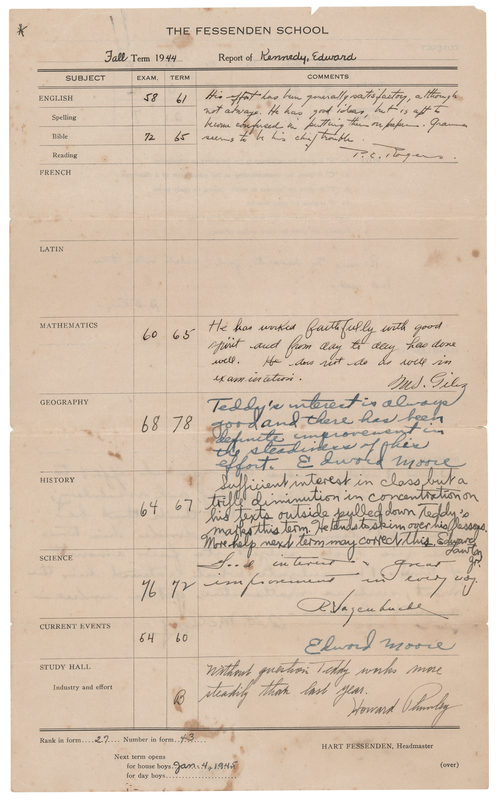 THE FESSENDEN SCHOOL
Fall Term 1944 Report of Kennedy, Edward
SUBJECT EXAM. TERM COMMENTS
ENGLISH 58 61
His effort has been generally satisfactory, although
not always. He has good ideas, but is apt to
become confused in putting them on paper. Grammar
seems to be his chief trouble.
P. C. Rogers.
Spelling
Bible 72 65
Reading
FRENCH
LATIN
MATHEMATICS 60 65
He has worked faithfully with good
spirit and from day to day has done
well. He does not do as well in
examination.
GEOGRAPHY 68 78
Teddy's interest is always
good and there has been
definite improvement in
the steadiness of his
effort. Edword Moore
HISTORY 64 67
Sufficient interest in class, but a
trifle diminution in concentration on
his texts outside pulled down Teddy's
marks this term. He tends to skim over his lessons.
More help next term may correct this. Edward
Lawton
Jr.
SCIENCE 76 72
Good interest & great
improvement in every way.
CURRENT EVENTS 54 60
Edword Moore
STUDY HALL
Industry and effort B
Without question Teddy works more
steadily than last year.
Howard
Rank in form....27.... Number in form..43...
HART FESSENDEN, Headmaster
Next term opens
for home boys..Jan. 4, 1945
for day boys
(over)